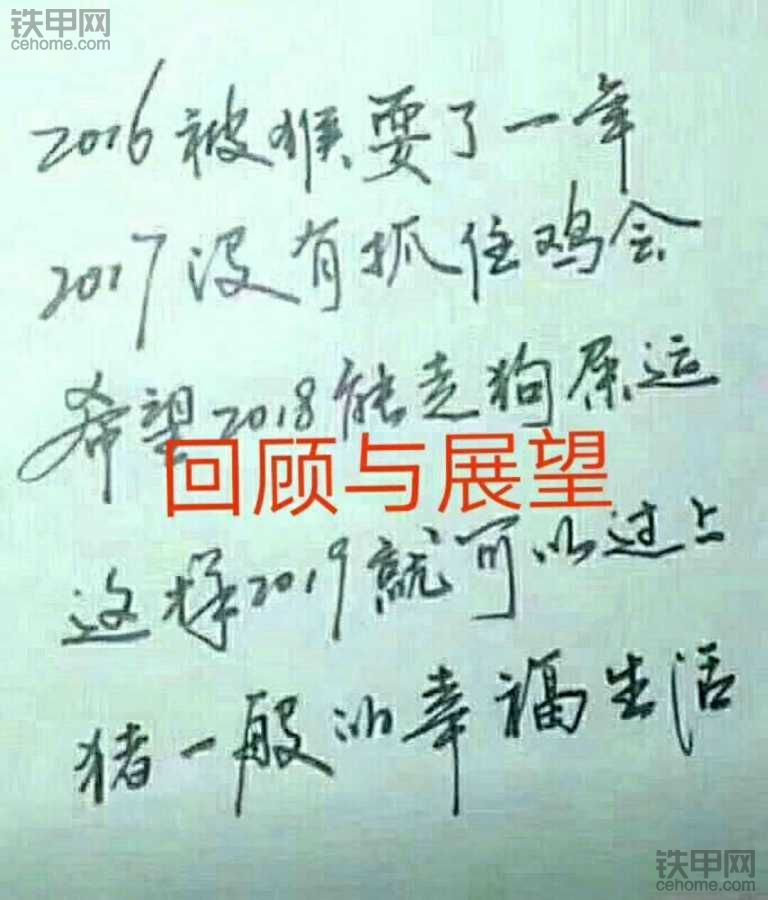 铁甲网
cehome.com
2016被猴耍了一年
2017没有抓住鸡会
希望2018能走狗屎运
回顾与展望
这样2019就可以过上
猪一般的幸福生活
铁甲网
cehome.com